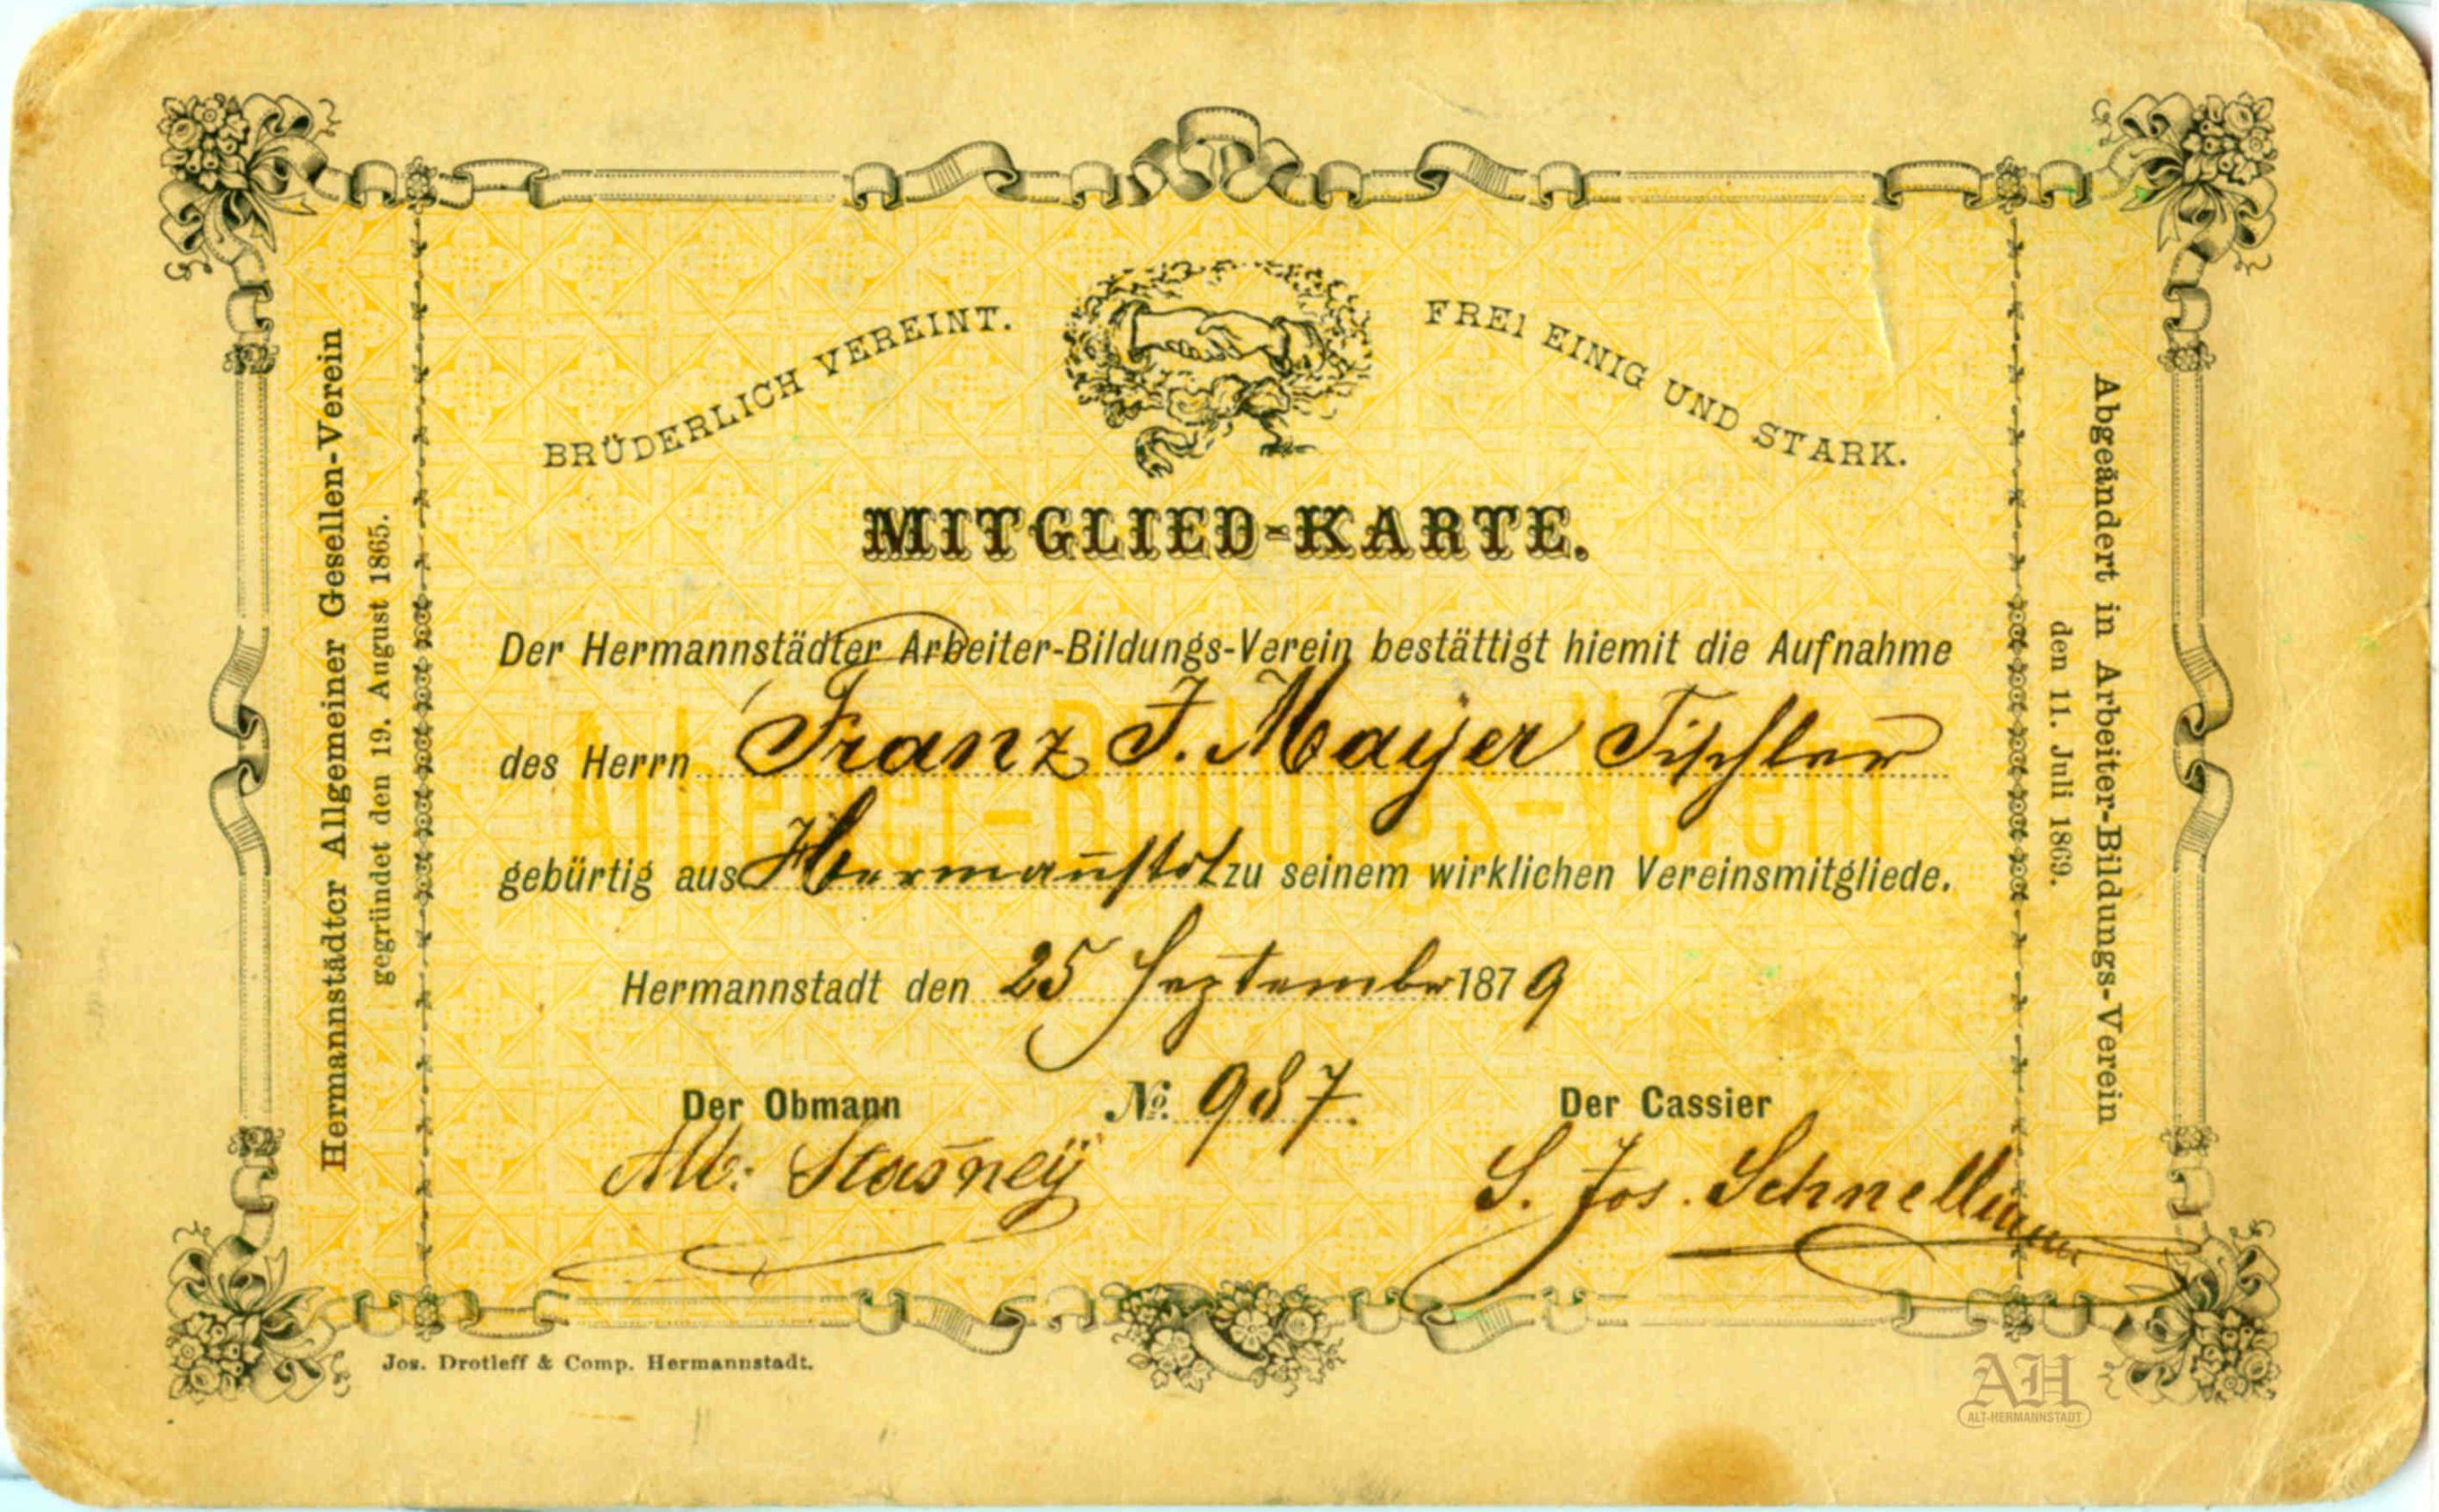 BRÜDERLICH VEREINT. FREI EINIG UND STARK.
MITGLIED-KARTE.
Der Hermannstädter Arbeiter-Bildungs-Verein bestättigt hiemit die Aufnahme
des Herrn Franz J. Mayer Tischler
gebürtig aus Hermanstdt zu seinem wirklichen Vereinsmitgliede.
Hermannstadt den 25 September 1879
Der Obmann № 987. Der Cassier
Alb: Stasney S. Jos. Schnellmann
Arbeiter-Bildungs-Verein
Hermannstädter Allgemeiner Gesellen-Verein
gegründet den 19. August 1865.
Abgeändert in Arbeiter-Bildungs-Verein
den 11. Juli 1869.
Jos. Drotleff & Comp. Hermannstadt.
AH
ALT-HERMANNSTADT